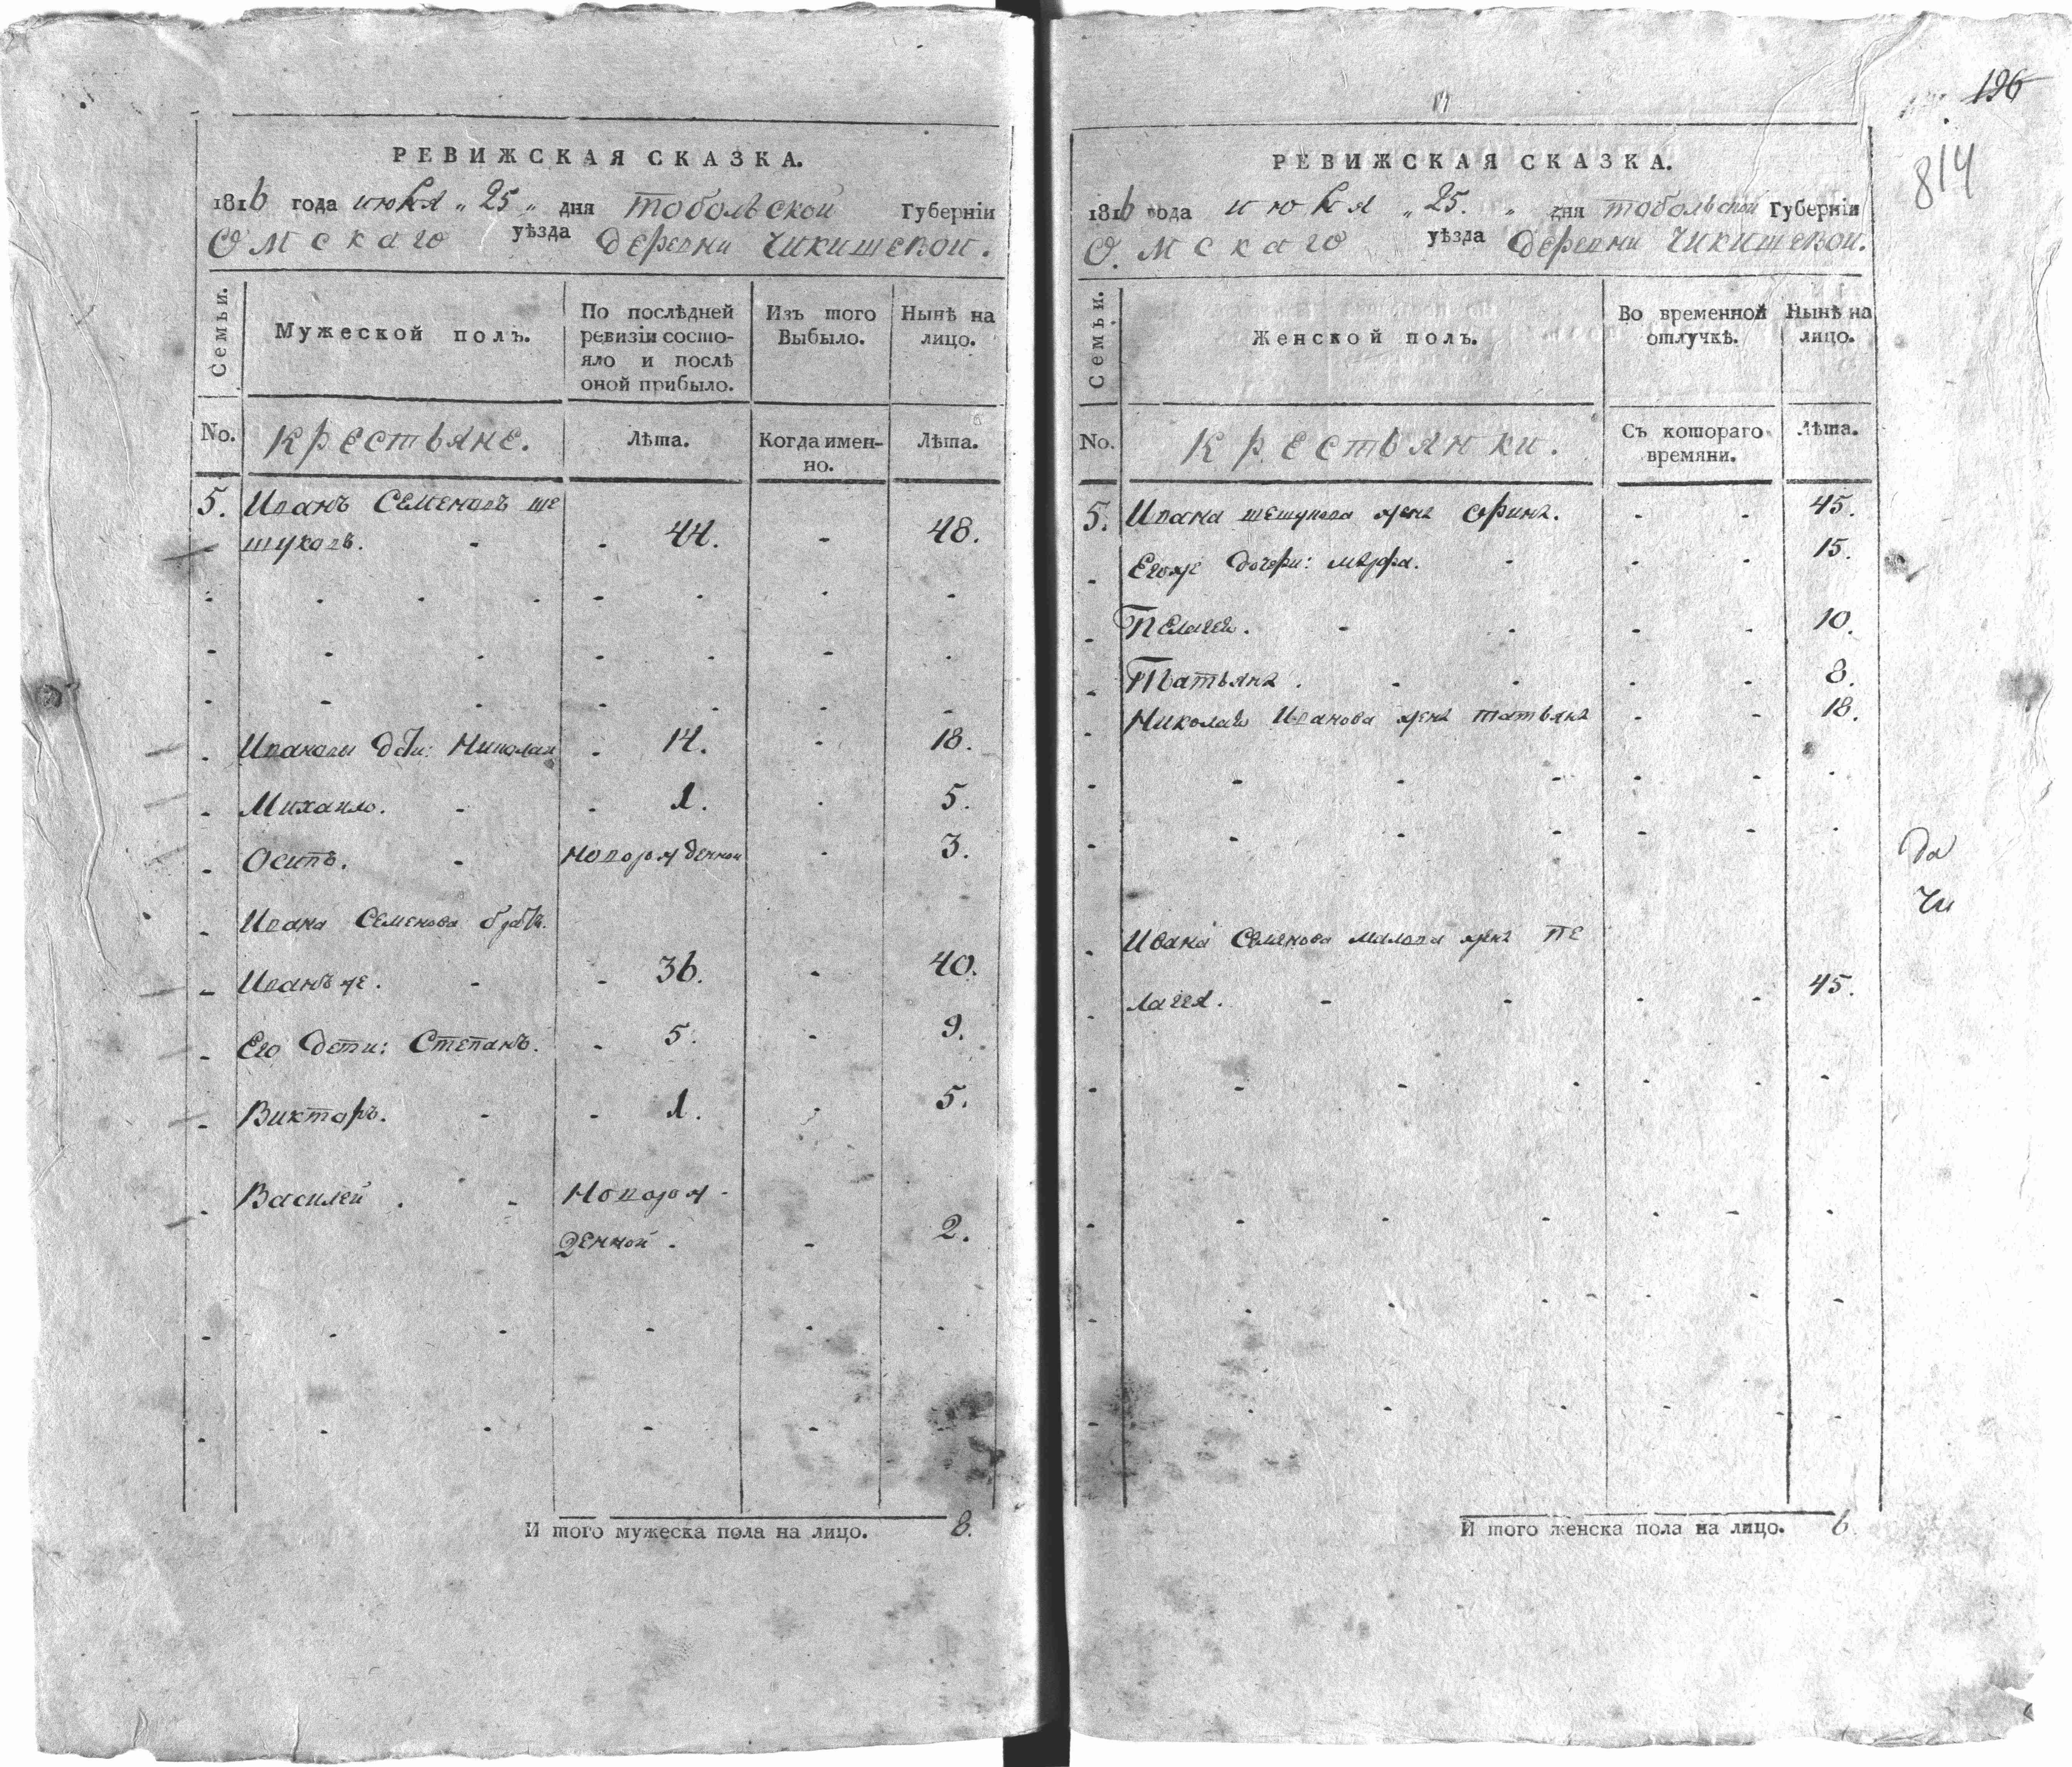 РЕВИЖСКАЯ СКАЗКА.
1816 года июня „ 25 „ дня тобольской Губерніи
Омскаго уѣзда деревни Чикишевой.
Семьи.
Мужеской полъ.
По послѣдней ревизіи состояло и послѣ оной прибыло.
Изъ того Выбыло.
Нынѣ на лицо.
No.
Крестьяне.
Лѣта.
Когда именно.
Лѣта.
5. Иванъ Семеновъ ше
шуковъ. - - 44. - 48.
Ивановы дѣти: Николай - 14. - 18.
Михайло. - - 1. - 5.
Осипъ. - Новорожденной - 3.
Ивана Семенова братъ.
Иванъ же. - - 36. - 40.
Его дети: Степанъ. - 5. - 9.
Викторъ. - - 1. - 5.
Василей . - Новорож-
денной . - 2.
И того мужеска пола на лицо. 8.
196
814
РЕВИЖСКАЯ СКАЗКА.
1816 года июня „ 25. „ дня тобольской Губерніи
Омскаго уѣзда деревни Чикишевой.
Семьи.
Женской полъ.
Во временной отлучкѣ.
Нынѣ на лицо.
No.
Крестьянки.
Съ котораго времяни.
Лѣта.
5. Ивана шешукова жена Орина. - - 45.
Егоже дочери: марфа. - - - 15.
Пелагея. - - - - 10.
Татьяна . - - - - 8.
Николая Иванова жена татьяна - - 18.
Ивана Семенова малова жена пе
лагея. - - - - 45.
да
Чи
И того женска пола на лицо. 6.